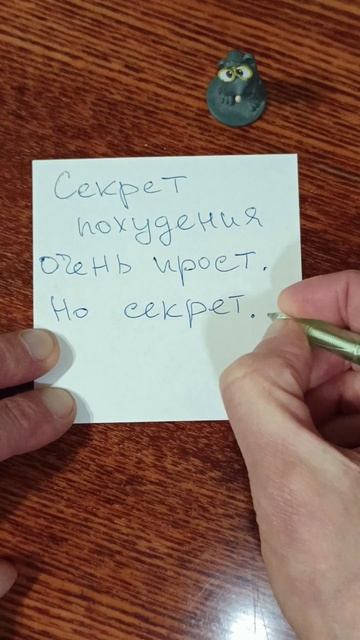 Секрет
похудения
очень прост.
Но секрет.